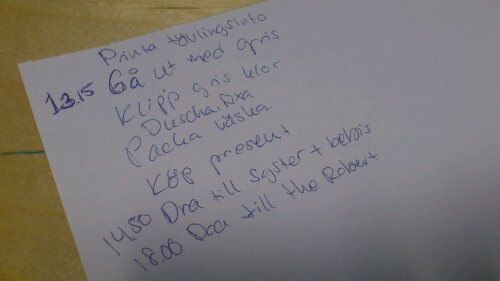 Printa tävlingsinfo
13.15 Gå ut med gris
Klipp gris klor
Duscha, fixa
Packa väska
Köp present
14.50 Dra till syster + bebis
18.00 Dra till the Robert